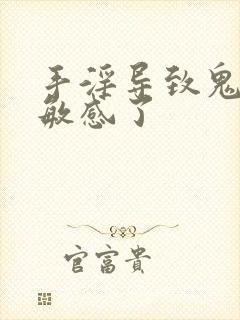 手淫导致鬼
敏感了
官富貴